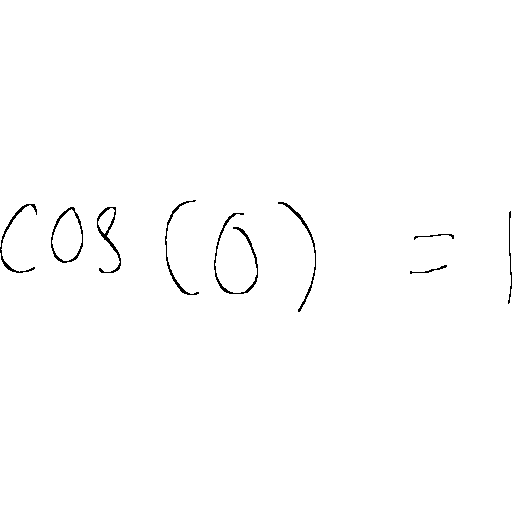 cos(0) = 1